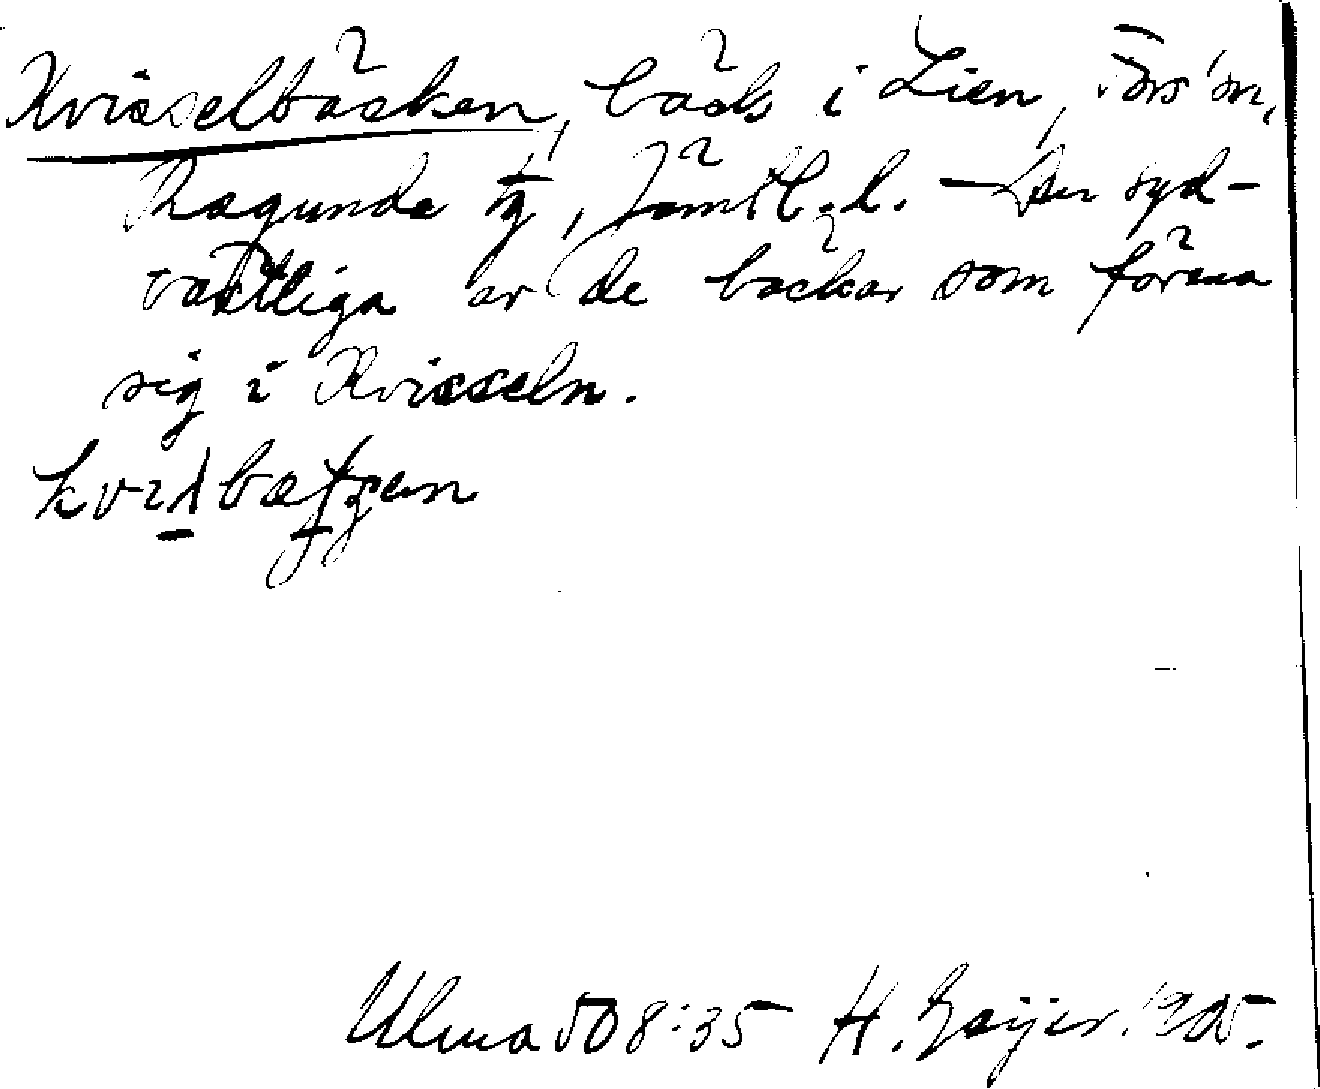 Kvisselbäcken, bäck i Lien, Fors sn,
Ragunda tg, Jämtl. l. – Den syd-
västliga av de bäckar som förena
sig i Kvisseln.
Ulma 508:35 H. Geijer 1905.